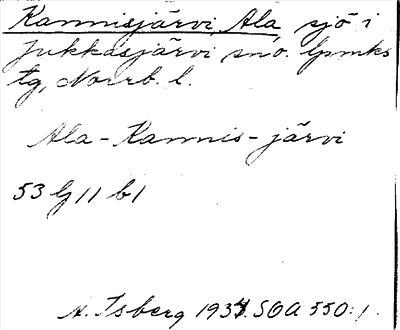 Kannisjärvi, Ala, sjö i
Jukkasjärvi sno. lpmks
tg, Norrb. l.
Ala-Kannis-järvi
53 G 11 b1
A. Isberg 1937. SOA 550:1.